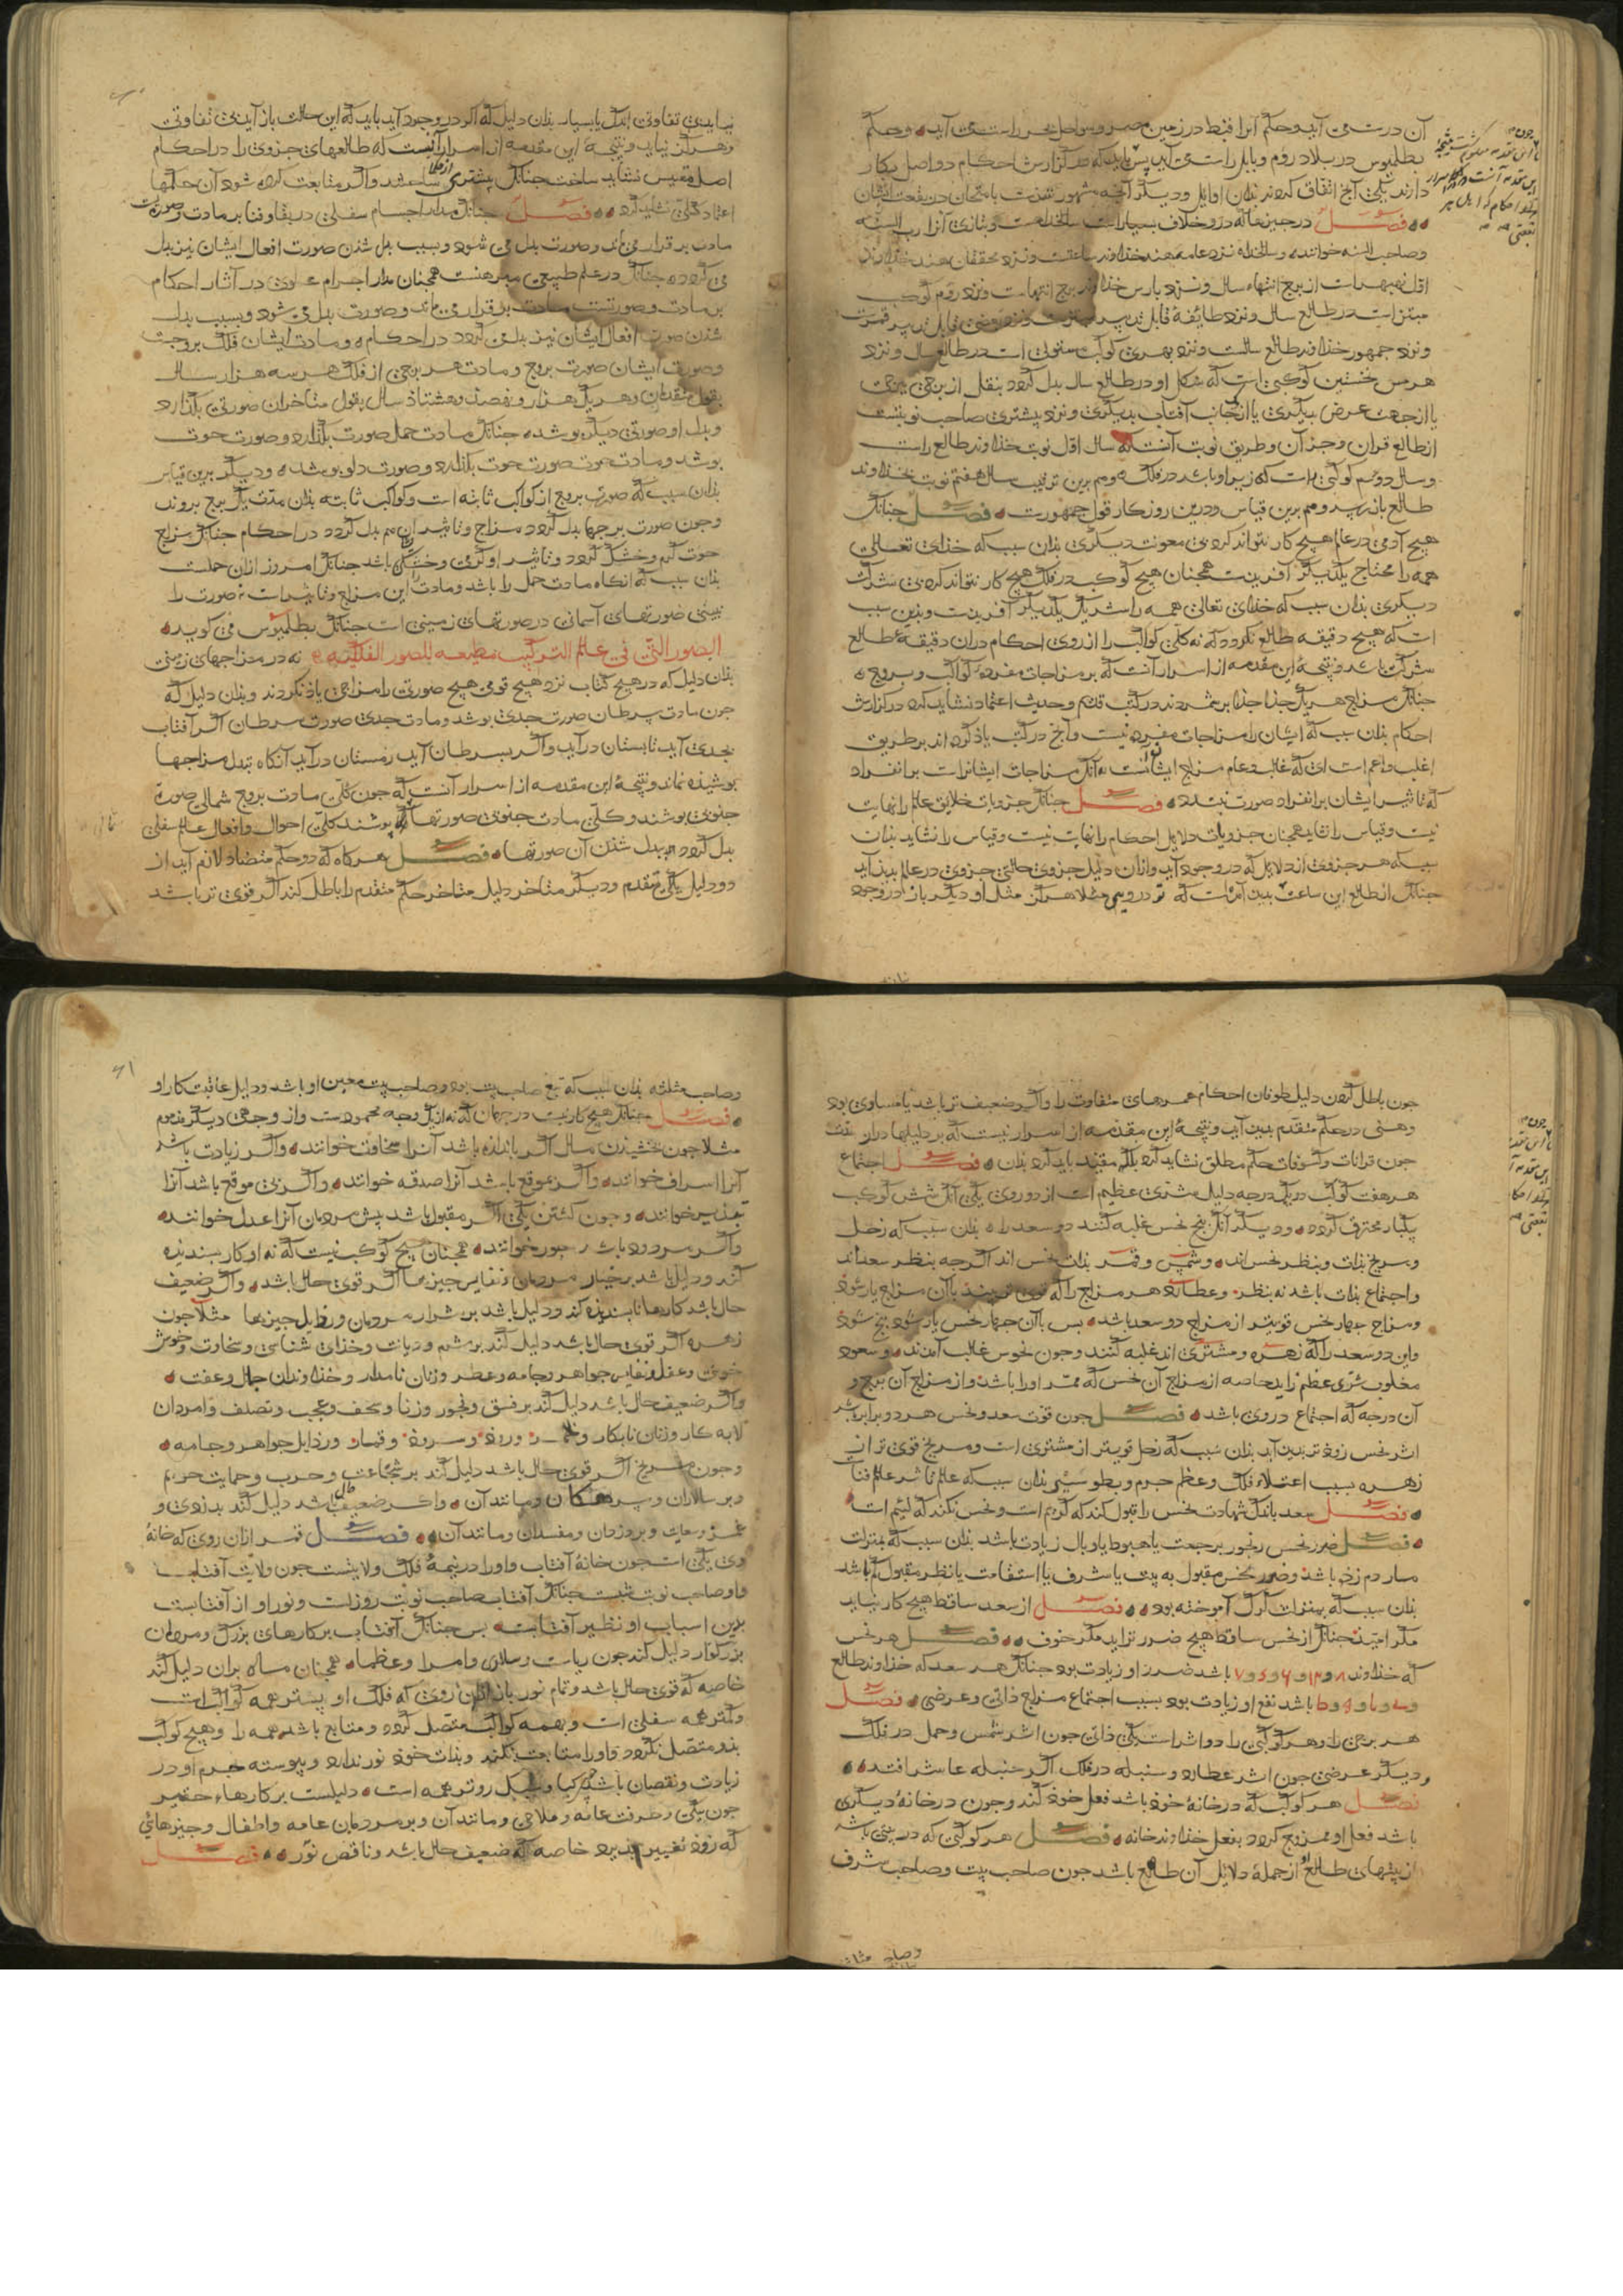 آن درست می آید و حکم آنرا قبط در زمین مصر و سواحل بحر راست می آید و حکم
بطلمیوس در بلاد روم و بابل راست می آید پس باید که در گزارش احکام دو اصل بکار
دارند یکی آنچ اتفاق کردند بذان اوایل و دیگر آنچه مشهور شدست
فصل در چیزها که درو خلاف بسیارست سالخداه است و بتازی آنرا رب السنه
و صاحب السنه خوانند و سالخداه نزد عامه هند خداوند ساعتست و نزد محققان هند خداوند
اول نهبهرات از برج انتهاء سال و نزد بارس خداوند برج انتهاست و نزد روم کوکب
مبتز است در طالع سال و نزد طایفه قابل تدبیر
و نزد جمهور خداوند طالع سالست و نزد بهری کوکب مستولی است در طالع سال و نزد
هرمس نخستین کوکبی است که شکل او در طالع سال بدل گردد بنقل از برجی ببرجی
یا از جهت عرض بدیگری یا از جانب آفتاب بدیگری و نزد بیشتری صاحب نوبتست
از طالع قران و جز آن و طریق نوبت آنست که سال اول نوبت خداوند طالع راست
و سال دوم کوکبی راست که زیر او باشد در فلک و هم برین ترتیب سال هفتم نوبت بخداوند
طالع باز رسد و هم برین قیاس و درین روزگار قول جمهورست فصل چنانک
هیچ آدمی در عالم هیچ کار نتواند کرد بی معونت دیگری بذان سبب که خذای تعالی
همه را محتاج یکدیگر آفریدست همچنان هیچ کوکب در فلک هیچ کار نتواند کرد بی شرکت
دیگری بذان سبب که خذای تعالی همه را شریک یکدیگر آفریدست و بدین سبب
است که هیچ دقیقه طالع نگردد که نه کلی کواکب را از روی احکام در آن دقیقه طالع
شرکت باشد و نتیجه این مقدمه از اسرار آنست که بر مزاجات مفرد کواکب و بروج
چنانک مزاج هر یک جذا جذا بر شمردند در کتب قدیم و حدیث اعتماد نشاید کرد در گزارش
احکام بذان سبب که ایشان را مزاجات مفرد نیست و آنچ در کتب یاد کرده اند بر طریق
اغلب و اعم است ای که غالب و عام مزاج ایشانست نه آنک مزاجات ایشانراست بر انفراد
که تاثیر ایشان بر انفراد صورت نبندد فصل چنانک جزویات خلایق عالم را نهایت
نیست و قیاس را نشاید همچنان جزویات دلایل احکام را نهایت نیست و قیاس را نشاید بذان
سبب که هر جزوی از دلایل که در وجود آید و از آن دلیل جزوی حالتی جزوی در عالم بدید آید
چنانک از طالع این ساعت
نیایدبی تفاوتی اندک یا بسیار بذان دلیل که اگر در وجود آید باید که این حالت باز آیدبی تفاوتی
و هرگز نیاید و نتیجه این مقدمه از اسرار آنست که طالعهای جزوی را در احکام
اصل مقیس نشاید ساخت چنانک بیشتری ساختند و اگر متابعت کرده شود آن حکمها
اعتماد کلی نشاید کرد فصل چنانک مدار اجسام سفلی در بقا و فنا بر مادت و صورتست
مادت بر قرار می ماند و صورت بدل می شود و بسبب بدل شدن صورت افعال ایشان نیز بدل
می گردد چنانک در علم طبیعی مبرهنست همچنان مدار اجرام علوی در آثار احکام
بر مادت و صورتست مادت بر قرار می ماند و صورت بدل می شود و بسبب بدل
شدن صورت افعال ایشان نیز بدل می گردد در احکام و مادت ایشان فلک بروجست
و صورت ایشان صورت بروج و مادت هر برجی از فلک هر سه هزار سال
بقول متقدمان و هر یک هزار و نهصد و هشتاد سال بقول متاخران صورتی بگذارد
و بدل او صورتی دیگر بوشد چنانک مادت حمل صورت بگذارد و صورت حوت
بوشد و مادت حوت صورت حوت بگذارد و صورت دلو بوشد و دیگر برین قیاس
بذان سبب که صورت بروج از کواکب ثابته است و کواکب ثابته بذان مدت یک برج بروند
و چون صورت برجها بدل گردد مزاج و تاثیر آن هم بدل گردد در احکام چنانک مزاج
حوت گرم و خشک گردد و تاثیر او گرمی و خشکی باشد چنانک امروز از آن حملست
بذان سبب که آنگاه مادت حمل را باشد و مادت را این مزاج و تاثیرات نه صورت را
یعنی صورتهای آسمانی در صورتهای زمینی است چنانک بطلمیوس می گوید
الصور التی فی عالم الترکیب مطیعه للصور الفلکیه نه در مزاجهای زمینی
بذان دلیل که در هیچ کتاب نزد هیچ قومی هیچ صورت را مزاجی یاد نکردند و بذان دلیل که
چون مادت سرطان صورت جدی بوشد و مادت جدی صورت سرطان اگر آفتاب
بجدی آید تابستان در آید و اگر بسرطان آید زمستان در آید آنگاه تبدل مزاجها
بوشیده نماند و نتیجه این مقدمه از اسرار آنست که چون کلی مادت بروج شمالی صورت
جنوبی بوشند و کلی مادت جنوبی صورتها بوشند کلی احوال و افعال عالم سفلی
بدل گردد ببدل شدن آن صورتها فصل هر گاه که دو حکم متضاد لازم آید از
دو دلیل یکی متقدم و دیگر متاخر دلیل متاخر حکم متقدم را باطل کند اگر قوی تر باشد
چون باطل کردن دلیل طوفان احکام عمرهای متفاوت را و اگر ضعیف تر باشد یا مساوی بود
وهنی در حکم متقدم بدید آید و نتیجه این مقدمه از اسرار نیست که بر دلیلها در آن
چون قرانات و کسوفات حکم مطلق نشاید کرد بلک مقید باید کرد بذان فصل اجتماع
هر هفت کوکب در یک درجه دلیل شری عظیم است از دو روی یکی آنک شش کوکب
بیکبار محترق گردد و دیگر آنک پنج نحس غلبه کنند دو سعد را بذان سبب که زحل
و مریخ بذات و بنظر نحس اند و شمس و قمر بذات نحس اند اگر چه بنظر سعداند
و اجتماع بذات باشد نه بنظر و عطارد هر مزاج را که قوی تر بیند با آن مزاج یار شود
و مزاج چهار نحس قویتر از مزاج دو سعد باشد بس با آن چهار نحس یار شود پنج شود
و این دو سعد را که زهره و مشتری اند غلبه کنند و چون نحوس غالب آمدند و سعود
مغلوب شری عظیم زاید خاصه از مزاج آن نحس که ممر او را باشد و از مزاج آن برج و
آن درجه که اجتماع در وی باشد فصل چون قوت سعد و نحس هر دو برابر باشد
اثر نحس زودتر بدید آید بذان سبب که زحل قویتر از مشتری است و مریخ قوی تر از
زهره بسبب اعتلاء فلک و عظم جرم و بطو سیر بذان سبب که عالم ما شر عالم فنا
فصل سعد باندک شهادت نحس را قبول کند که کریم است و نحس نکند که لئیم است
فصل ضرر نحس رنجور برجعت یا هبوط یا وبال زیادت باشد بذان سبب که بمنزلت
مار دم زده باشد و ضرر نحس مقبول به بیت یا شرف یا استقامت یا نظر مقبول کم باشد
بذان سبب که بمنزلت گرگ آموخته بود فصل از سعد ساقط هیچ کار نیاید
مگر امید چنانک از نحس ساقط هیچ ضرر نزاید مگر خوف فصل هر نحس
که خداوند ۸ و ۱۲ و ۶ و ۷ باشد ضرر او زیادت بود چنانک هر سعد که خداوند طالع
باشد نفع او زیادت بود بسبب اجتماع مزاج ذاتی و عرضی فصل
هر برجی را و هر کوکبی را دو اثر است یکی ذاتی چون اثر شمس و حمل در فلک
و دیگر عرضی چون اثر عطارد و سنبله در فلک اگر سنبله عاشر افتد
فصل هر کوکب که در خانه خود باشد فعل خود کند و چون در خانه دیگری
باشد فعل او ممزوج گردد بفعل خداوند خانه فصل هر کوکبی که در بیتی باشد
از بیتهای طالع از جمله دلایل آن طالع باشد چون صاحب بیت و صاحب شرف
و صاحب مثلثه بذان سبب که تبع صاحب بیت بود و صاحب بیت معین او باشد و دلیل عاقبت کار او
فصل چنانک هیچ کار نیست در جهان که نه از یک وجه محمودست و از وجهی دیگر مذموم
مثلا چون بخشیدن مال اگر باندازه باشد آنرا سخاوت خوانند و اگر زیادت باشد
آنرا اسراف خوانند و اگر بموقع باشد آنرا صدقه خوانند و اگر بی موقع باشد آنرا
تبذیر خوانند و چون کشتن یکی اگر مقبول باشد پیش مردمان آنرا عدل خوانند
و اگر مردود باشد جور خوانند همچنان هیچ کوکب نیست که نه او کار بسندیده
کند و دلیل باشد بر خیار مردمان و نفایس چیزها اگر قوی حال باشد و اگر ضعیف
حال باشد کارها نابسندیده کند و دلیل باشد بر شرار مردمان و رذایل چیزها مثلا چون
زهره اگر قوی حال باشد دلیل کند بر شرم و دیانت و خدای شناسی و سخاوت و خوش
خویی و عقل و نفایس جواهر و جامه و عطر و زنان نامدار و خداوندان جمال و عفت
و اگر ضعیف حال باشد دلیل کند بر فسق و فجور و زنا و عجب و تصلف و امردان
لابه کار و زنان نابکار و قمار و رذایل جواهر و جامه
و چون مریخ اگر قوی حال باشد دلیل کند بر شجاعت و حرب و حمایت حریم
و بر سالاران و سرهنگان و مانند آن و اگر ضعیف حال باشد دلیل کند بدزدی و
غمز و سعایت و بر دزدان و مفسدان و مانند آن فصل قمر از آن روی که خانه
وی یکی است چون خانه آفتاب و او را در نیمه فلک ولایتست چون ولایت آفتاب
و او صاحب نوبت شبست چنانک آفتاب صاحب نوبت روزست و نور او از آفتابست
بدین اسباب او نظیر آفتابست بس چنانک آفتاب بر کارهای بزرگ و مردمان
بزرگوار دلیل کند چون ریاست و سلاری و امرا و عظما همچنان ماه بر آن دلیل کند
خاصه که قوی حال باشد و تمام نور باز از آن روی که فلک او بیشتر همه کواکب است
و کمتر همه سفلی است و بهمه کواکب متصل گردد و متابع باشد همه را و هیچ کوکب
بذو متصل نگردد و او را متابعت نکند و بذات خود نور ندارد و پیوسته جرم او در
زیادت و نقصان باشد و سبک روتر همه است دلیلست بر کارهاء حقیر
چون پیکی و حرفت عامه و ملاحی و مانند آن و بر مردمان عامه و اطفال و چیزهائی
که زود تغییر پذیرد خاصه که ضعیف حال باشد و ناقص نور فصل